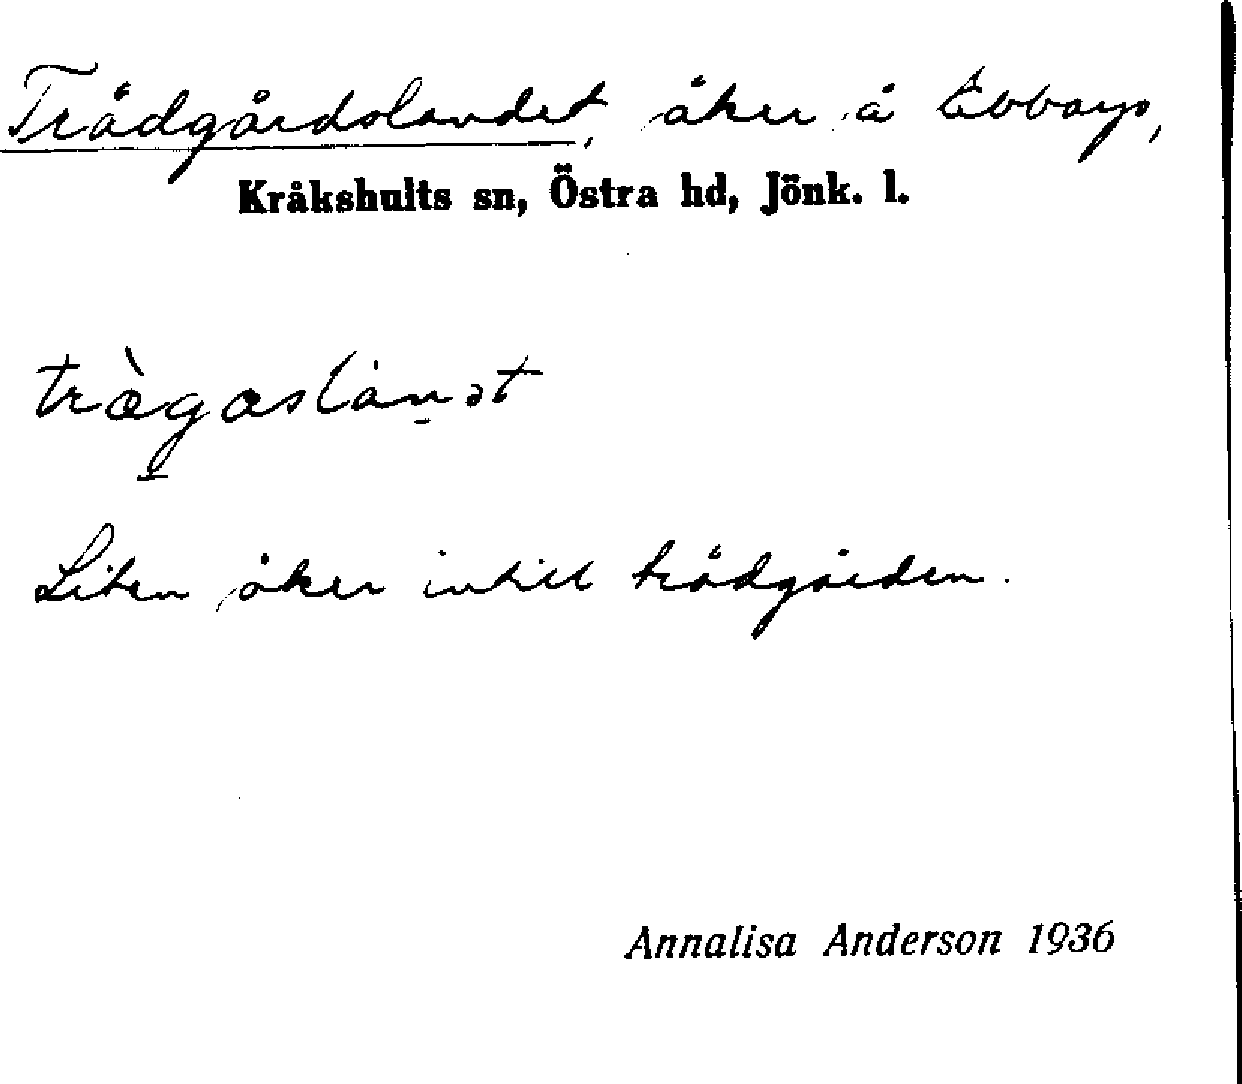 Trädgårdslandet, åker å Ebbarp,
Kråkshults sn, Östra hd, Jönk. l.
træ̀gaslånət
Liten åker intill trädgården.
Annalisa Anderson 1936